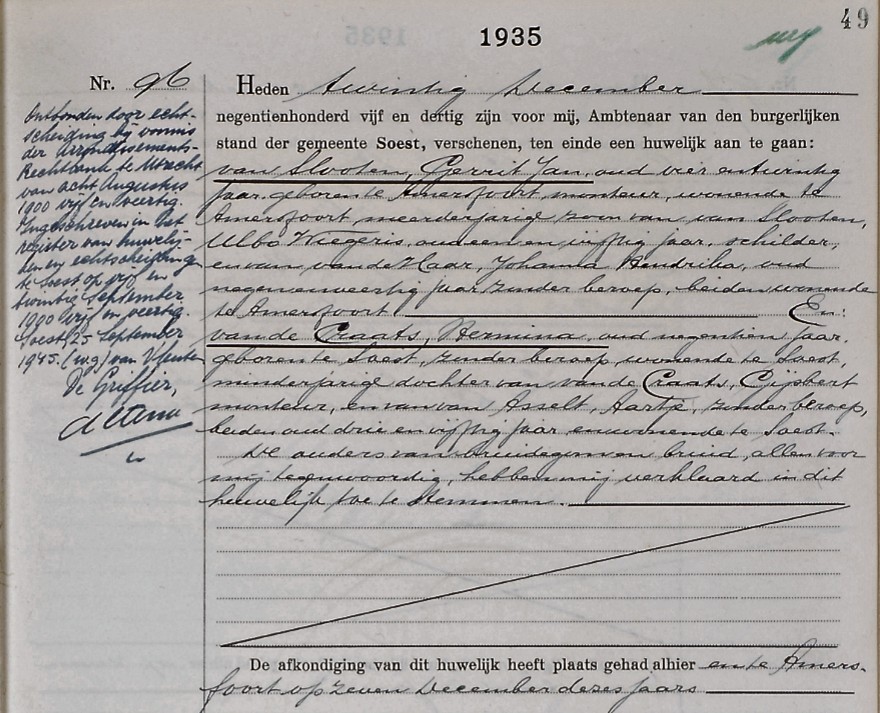 49
1935
Nr. 96
Ontbonden door echt-
scheiding bij vonnis
der Arrondissements-
Rechtbank te Utrecht
van acht Augustus
1900 vijf en veertig.
Ingeschreven in het
register van huwelij-
ken en echtscheidingen
te Soest op vijf en
twintig September
1900 vijf en veertig.
Soest, 25 September
1945. (w.g.) van
De Griffier,
Heden twintig December
negentienhonderd vijf en dertig zijn voor mij, Ambtenaar van den burgerlijken
stand der gemeente Soest, verschenen, ten einde een huwelijk aan te gaan:
van Slooten, Gerrit Jan, oud vier en twintig
jaar, geboren te Amersfoort, monteur, wonende te
Amersfoort, meerderjarige zoon van van Slooten,
Ulbo Wiegeris, oud een en vijftig jaar, schilder,
en van van de Haar, Johanna Hendrika, oud
negen en veertig jaar zonder beroep, beiden wonende
te Amersfoort En:
van de Craats, Hermina, oud negentien jaar,
geboren te Soest, zonder beroep, wonende te Soest,
minderjarige dochter van van de Craats, Gijsbert
monteur, en van van Asselt, Aartje, zonder beroep,
beiden oud drie en vijftig jaar en wonende te Soest.
De ouders van bruidegom en bruid, allen voor
mij tegenwoordig, hebben mij verklaard in dit
huwelijk toe te stemmen.
De afkondiging van dit huwelijk heeft plaats gehad alhier en te Amers-
foort op zeven December dezes jaars